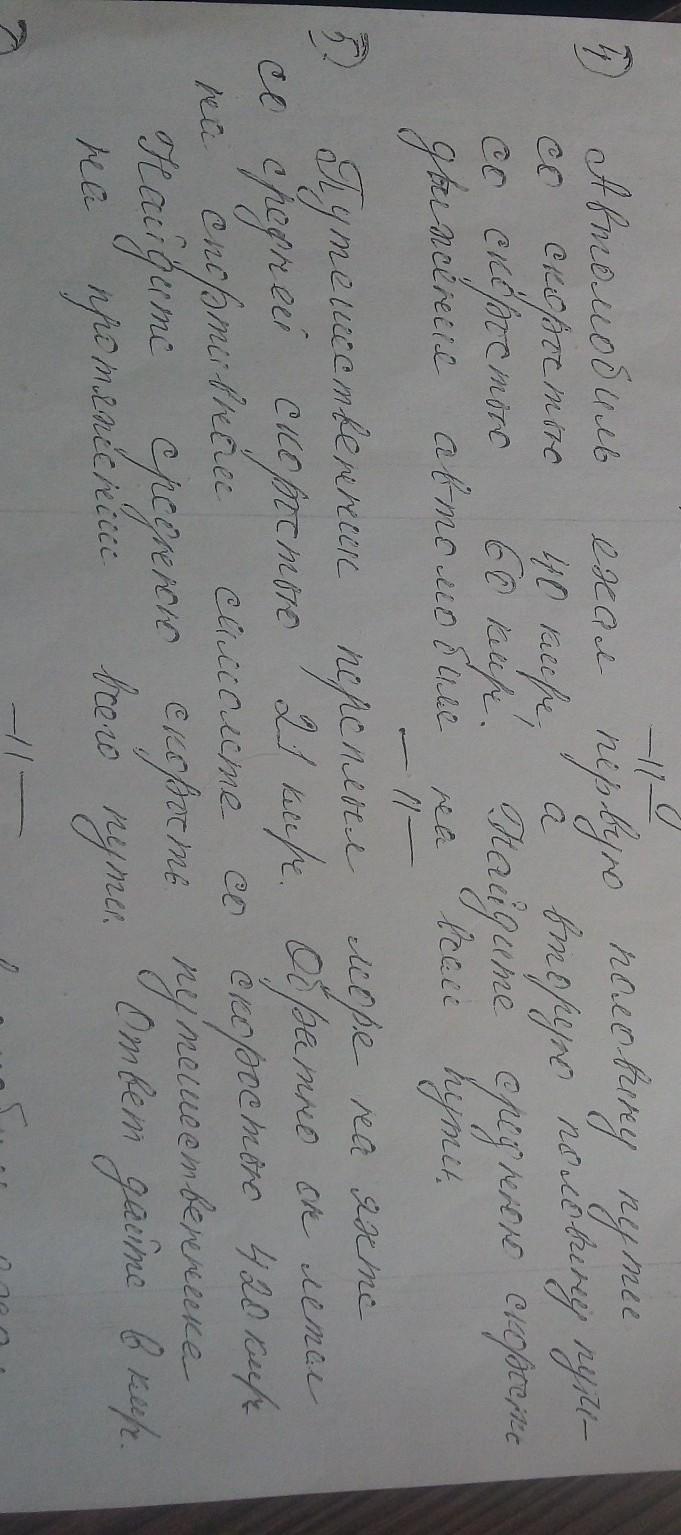 — 11 —
4) Автомобиль ехал первую половину пути
со скоростью 40 км/ч, а вторую половину пути —
со скоростью 60 км/ч. Найдите среднюю скорость
движения автомобиля на всем пути.
— 11 —
5) Путешественник переплыл море на яхте
со средней скоростью 21 км/ч. Обратно он летел
на спортивном самолете со скоростью 420 км/ч
Найдите среднюю скорость путешественника
на протяжении всего пути. Ответ дайте в км/ч.
— 11 —